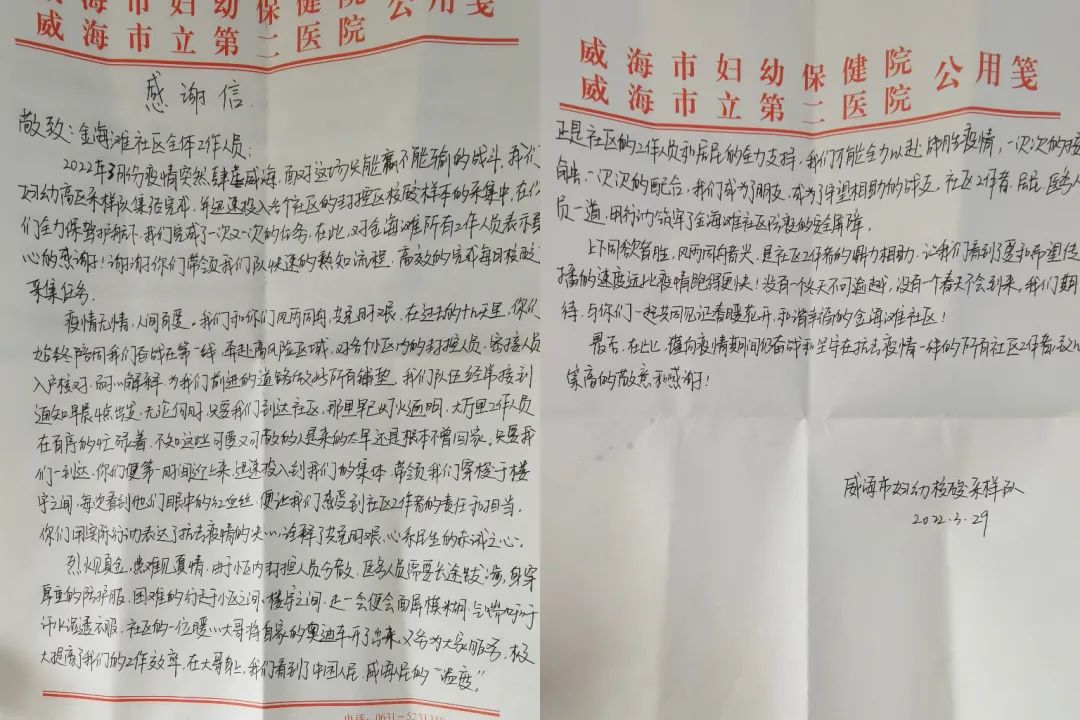 威海市妇幼保健院
威海市立第二医院
公用笺
感谢信
敬致：金海滩社区全体工作人员：
2022年3月份疫情突然肆虐威海，面对这场只能赢不能输的战斗，我们
妇幼高区采样队集结完成，并迅速投入各个社区的封控区核酸样本的采集中，在你
们全力保驾护航下，我们完成了一次又一次的任务。在此，对金海滩所有工作人员表示衷
心的感谢！谢谢你们带领我们队快速的熟知流程，高效的完成每日核酸
采集任务。
疫情无情，人间有爱。我们和你们风雨同舟，共克时艰，在过去的十几天里，你们
始终陪同我们奋战在第一线，奔赴高风险区域，对各个小区内的封控人员、密接人员
入户核对，耐心解释，为我们前进的道路做好所有铺垫。我们队伍经常接到
通知早晨4点出发，无论何时，只要我们到达社区，那里早已灯火通明，大厅里工作人员
在有序的忙碌着，不知这些可爱又可敬的人是来的太早还是根本不曾回家，只要我
们一到达，你们便第一时间迎上来，迅速投入到我们的集体，带领我们穿梭于楼
宇之间，每次看到他们眼中的红血丝，便让我们感受到社区工作者的责任和担当。
你们用实际行动表达了抗击疫情的决心，诠释了共克时艰、心系民生的赤诚之心。
烈火见真金，患难见真情，由于小区内封控人员分散，医务人员需要长途跋涉，身穿
厚重的防护服，困难的行走于小区之间、楼宇之间，不一会便会面屏模糊，气喘吁吁
汗水湿透衣服，社区的一位暖心大哥将自家的奥迪车开了出来，义务为大家服务，极
大提高了我们的工作效率，在大哥身上，我们看到了中国人民、威海人民的“温度”。
电话：0631-5231358
威海市妇幼保健院
威海市立第二医院
公用笺
正是社区的工作人员和居民的全力支持，我们才能全力以赴战胜疫情，一次次的接
触，一次次的配合，我们成为了朋友，成为了守望相助的战友，社区工作者、居民、医务人
员一道，用行动筑牢了金海滩社区防疫的安全屏障。
上下同欲者胜，风雨同舟者兴，是社区工作者的鼎力相助，让我们看到了爱和希望传
播的速度远比疫情跑得更快！没有一个冬天不可逾越，没有一个春天不会到来，我们期
待，与你们一起共同见证春暖花开、和谐幸福的金海滩社区！
最后，在此，谨向疫情期间仍奋战和坚守在抗击疫情一线的所有社区工作者致以
崇高的敬意和感谢！
威海市妇幼核酸采样队
2022.3.29